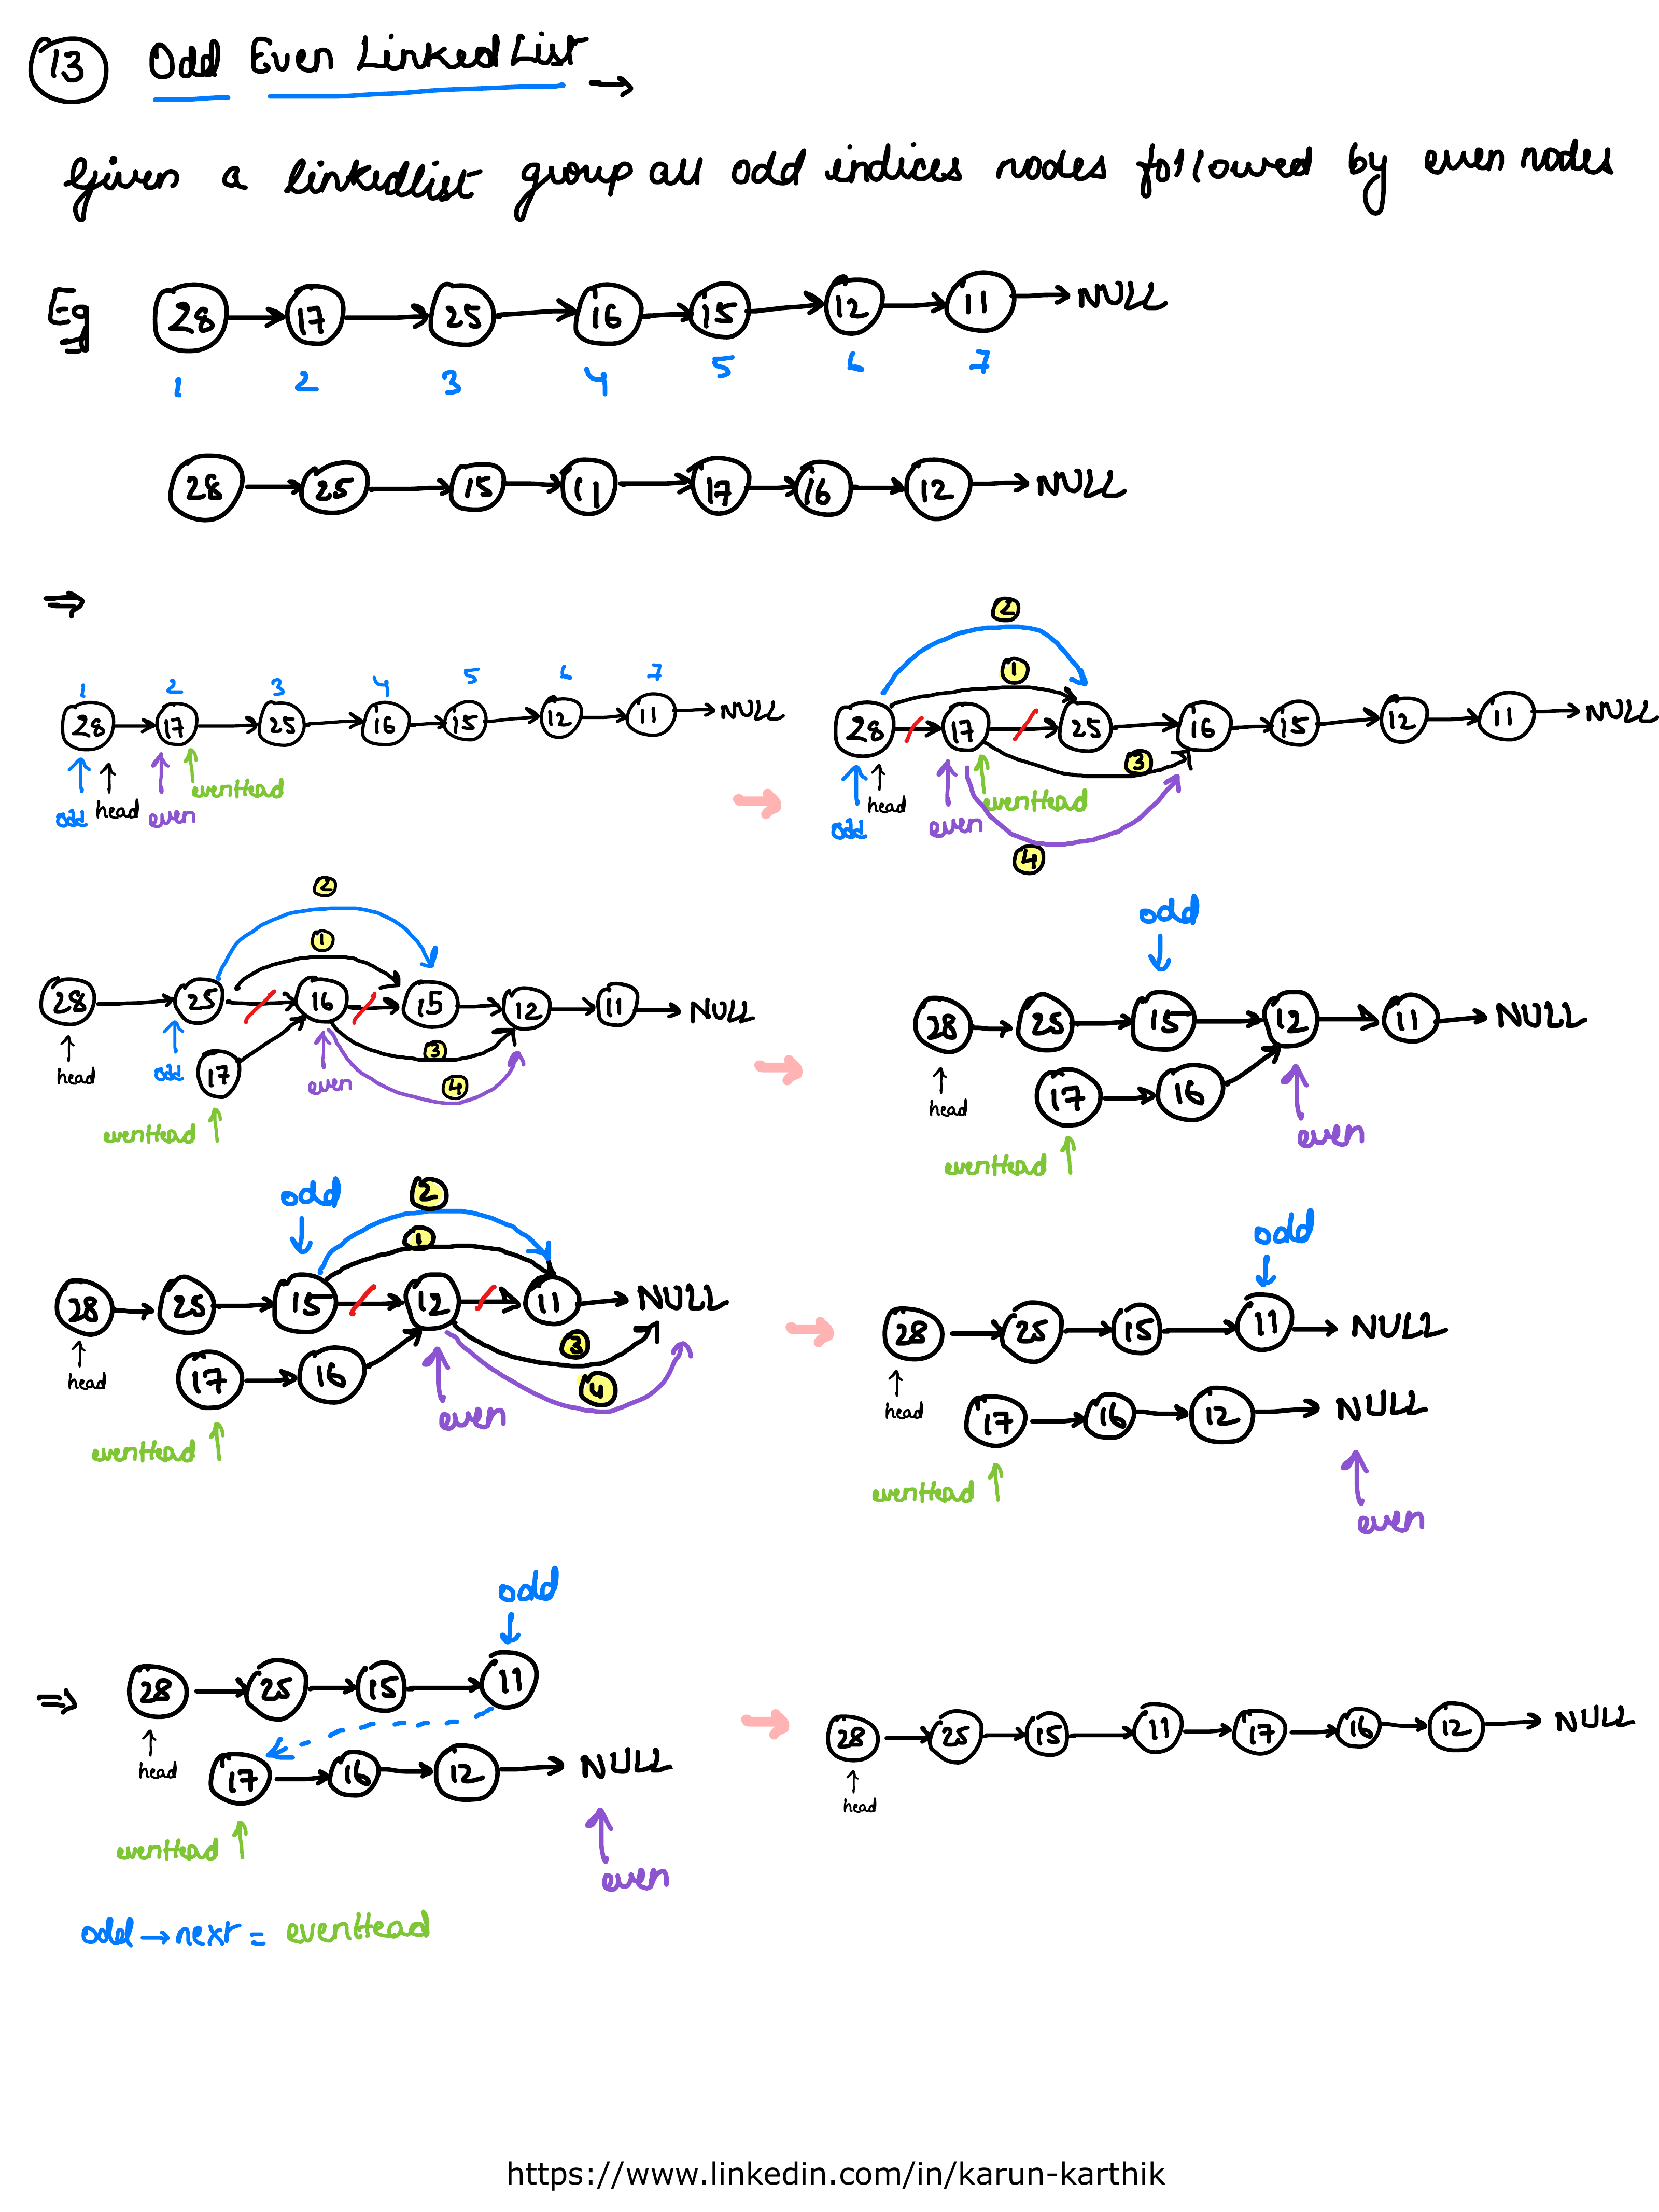 13 Odd Even Linked List →
Given a linkedlist group all odd indices nodes followed by even nodes
Eg 28 → 17 → 25 → 16 → 15 → 12 → 11 → NULL
1 2 3 4 5 6 7
28 → 25 → 15 → 11 → 17 → 16 → 12 → NULL
⇒
1 2 3 4 5 6 7
28 → 17 → 25 → 16 → 15 → 12 → 11 → NULL
odd head even evenHead
2
1
28 → 17 → 25 → 16 → 15 → 12 → 11 → NULL
3
odd head even evenHead
4
2
1
28 → 25 → 16 → 15 → 12 → 11 → NULL
3
head odd 17 even 4
evenHead
odd
28 → 25 → 15 → 12 → 11 → NULL
17 → 16
head
even
evenHead
odd 2
1
28 → 25 → 15 → 12 → 11 → NULL
3
head 17 → 16 4
even
evenHead
odd
28 → 25 → 15 → 11 → NULL
head
17 → 16 → 12 → NULL
evenHead
even
odd
⇒ 28 → 25 → 15 → 11
head
17 → 16 → 12 → NULL
evenHead
even
odd → next = evenHead
28 → 25 → 15 → 11 → 17 → 16 → 12 → NULL
head
https://www.linkedin.com/in/karun-karthik